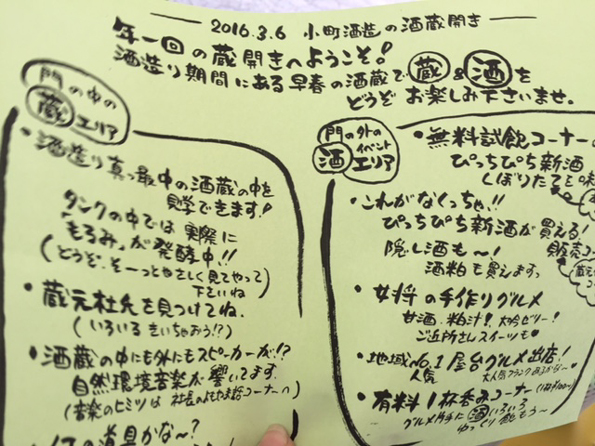 2016.3.6 小町酒造の酒蔵開き
年一回の蔵開きへようこそ!
酒造り期間にある早春の酒蔵で蔵&酒を
どうぞお楽しみ下さいませ。
門の中の
蔵エリア
・酒造り真っ最中の酒蔵の中を
見学できます!
タンクの中では実際に
「もろみ」が発酵中!!
(どうぞ、そーっとやさしく見てやって
下さいね)
・蔵元杜氏を見つけてね.
(いろいろきいちゃおう!?)
・酒蔵の中にも外にもスピーカーが!?
自然環境音楽が響いてます.
(音楽のヒミツは 社長のよもやま話コーナーへ)
の道具かな〜?
門の外の
イベント
酒エリア
・無料試飲コーナーの
ぴっちぴち新酒
しぼりたてを味
・これがなくっちゃ!!
ぴっちぴち新酒が買える!
隠し酒も〜! 販売コ
酒粕も買えますっ
・女将の手作りグルメ
甘酒.粕汁!大吟ゼリー!
ご近所さんスイーツも♥
・地域No.1屋台グルメ出店!
人気 大人気フランクあるかな〜
・有料1杯呑みコーナー
グルメ片手に酒いろいろ
ゆっくり飲もう〜